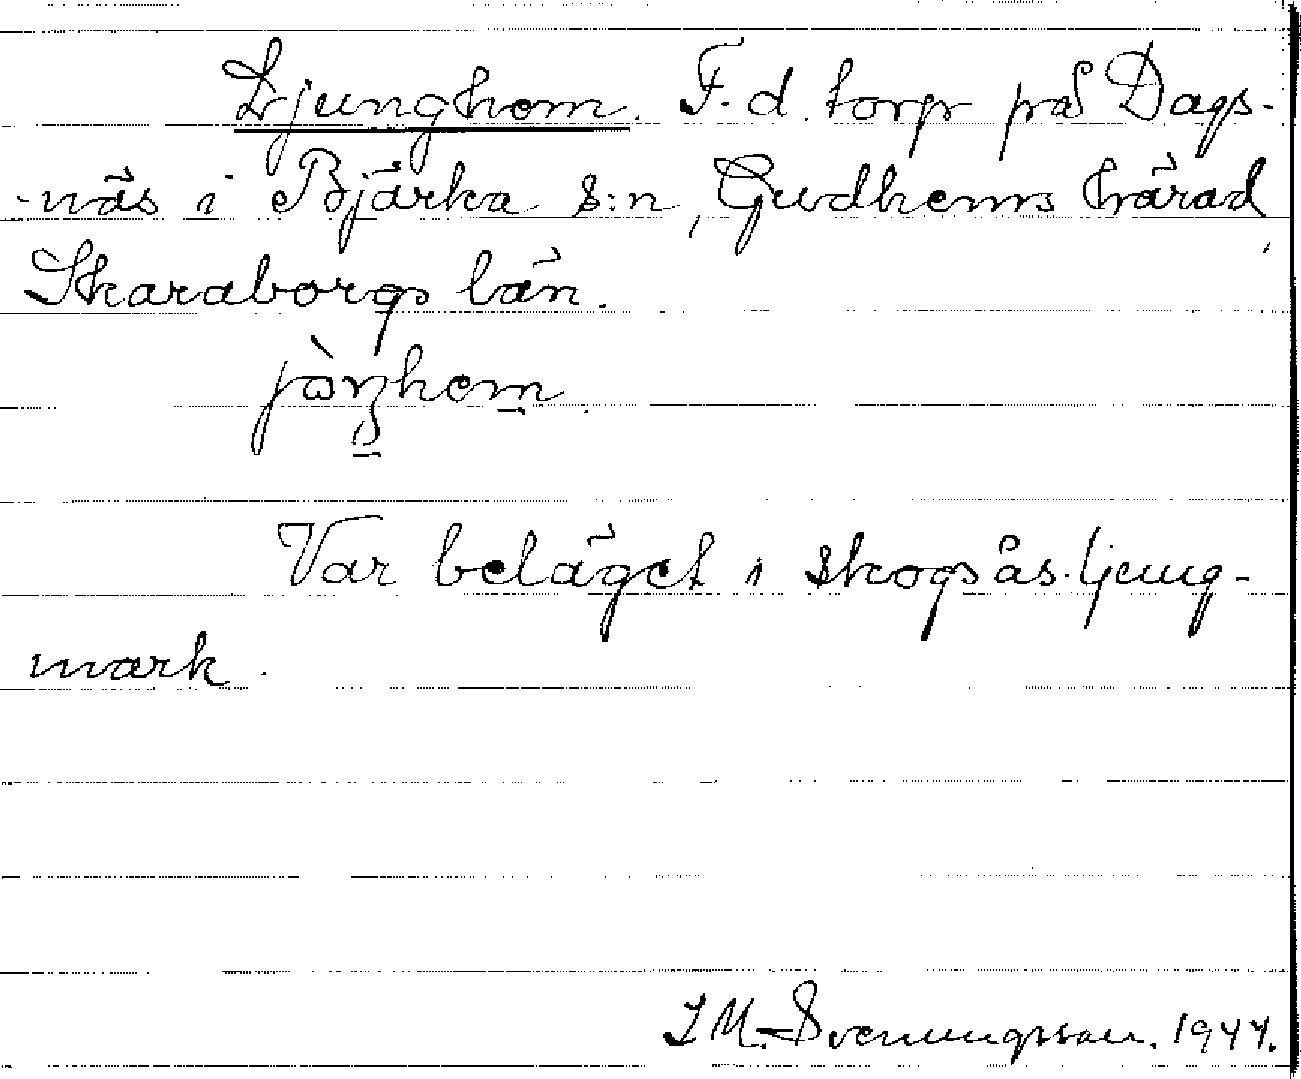 Ljunghem. F. d. torp på Dags-
-näs i Bjärka s:n, Gudhems härad,
Skaraborgs län.
Var beläget i skogsås. ljung-
mark.
J M. Svenungsson. 1944.